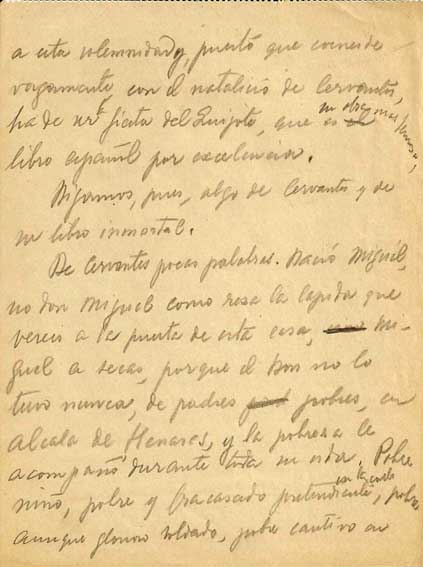 a esta solemnidad y, puesto que coincide
vagamente con el natalicio de Cervantes,
ha de ser fiesta del Quijote, que es su obra más famosa,
libro español por excelencia.
Digamos, pues, algo de Cervantes y de
su libro inmortal.
De Cervantes pocas palabras. Nació Miguel,
no don Miguel como reza la lapida que
vereis a la puerta de esta casa, Mi-
guel a secas, porque el Don no lo
tuvo nunca, de padres pobres, en
Alcala de Henares, y la pobreza le
acompañó durante toda su vida. Pobre
niño, pobre y fracasado pretendiente en la corte, pobre
aunque glorioso soldado, pobre cautivo en